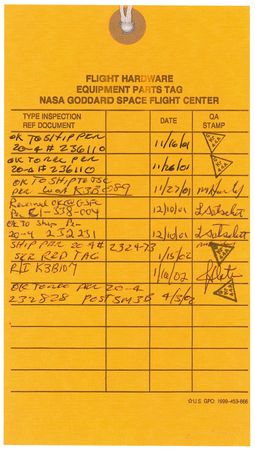 FLIGHT HARDWARE
EQUIPMENT PARTS TAG
NASA GODDARD SPACE FLIGHT CENTER
TYPE INSPECTION
REF DOCUMENT
DATE
QA
STAMP
OK TO SHIP PER
20-4 # 236110
11/16/01
OK TO REC PER
20-4 # 236110
11/26/01
OK TO SHIP TO JSC
PER WOA K3B1089
11/27/01
OK @ GSFC
Per
12/10/01
OK TO Ship Per
20-4 232231
12/10/01
SHIP PER 20-4 # 232473
SEE RED TAG
1/15/02
RI K3B107
1/16/02
OK TO REC PER 20-4
232828 POST SM3B
4/3/02
☆U.S. GPO: 1999-453-666